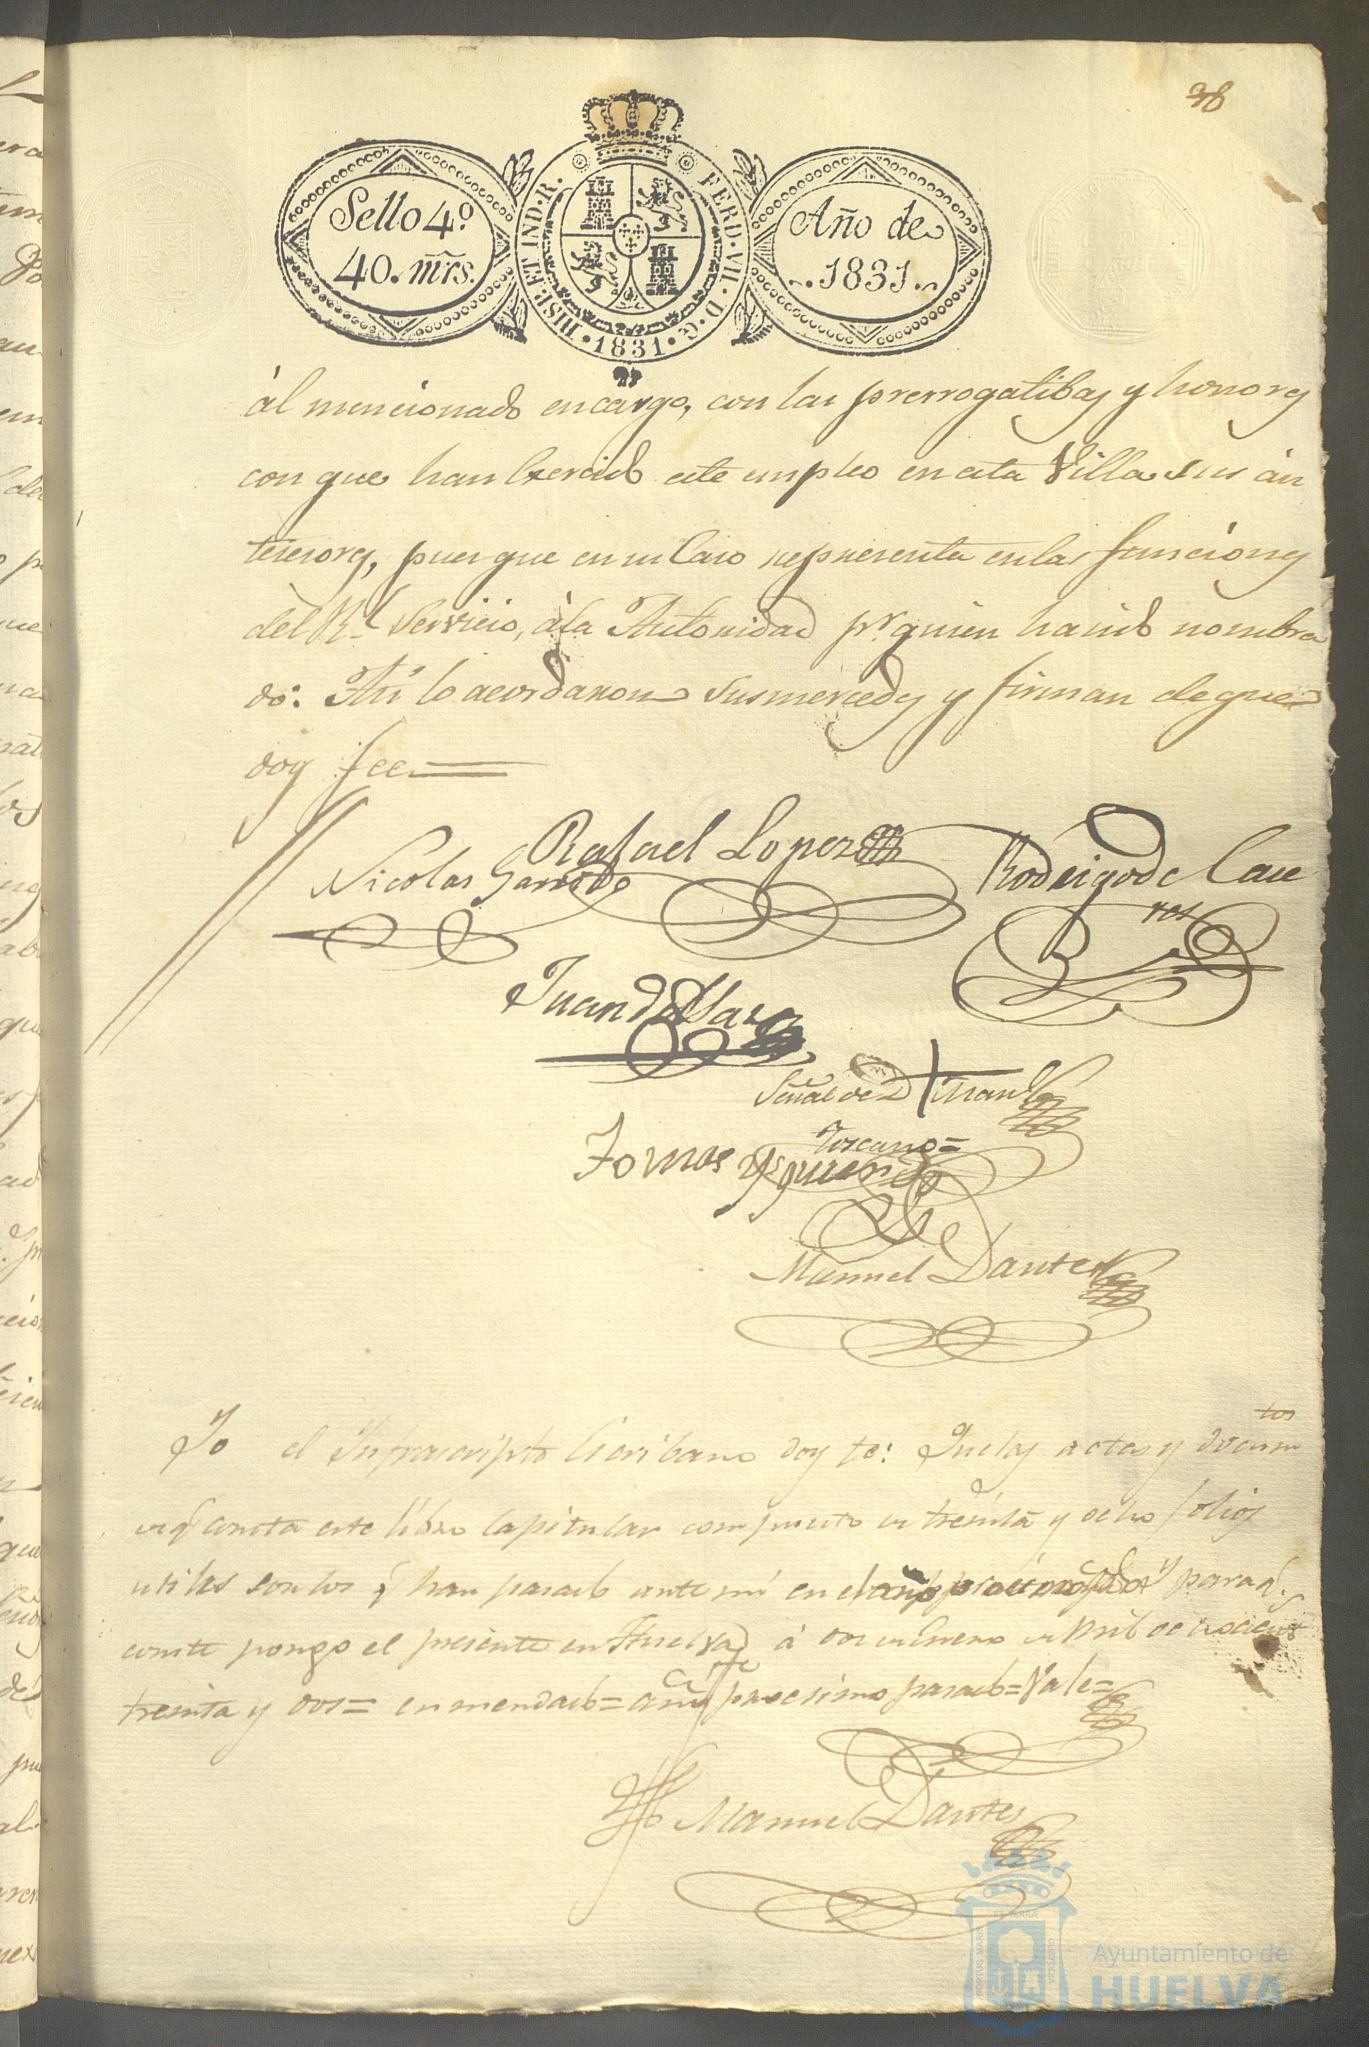 38
Sello 4º.
40. mrs.
HISP. ET IND. R.
FERD. VII. D. G.
1831
Año de
1831.
ál mencionado encargo, con las prerrogatibas y honores
con que han exercido este empleo en esta Villa sus án
tesesores, pues que en su Caso representa en las funciones
del Rl. Servicio, á la Autoridad pr. quien ha sido nombra
do: Asi lo acordaron Susmercedes y firman de que
doy fee
Rafael Lopez
Nicolas Garrido
Rodrigo de
Juan de
Señal de D + Juan
Toscano=
Tomas Figueroa
Manuel Dantes
Yo el Infrascripto Escribano doy fe: Que las actas y docum
tos
de q consta este libro Capitular compuesto de treinta y ocho folios
utiles son los q han pasado ante mi en el año procsimo pasdo. y para q.
conste pongo el presente en Huelva á dos de Enero de Mil ochocientos
treinta y dos= enmendado= año procsimo pasado= Vale=
Manuel Dantes
Ayuntamiento de
HUELVA